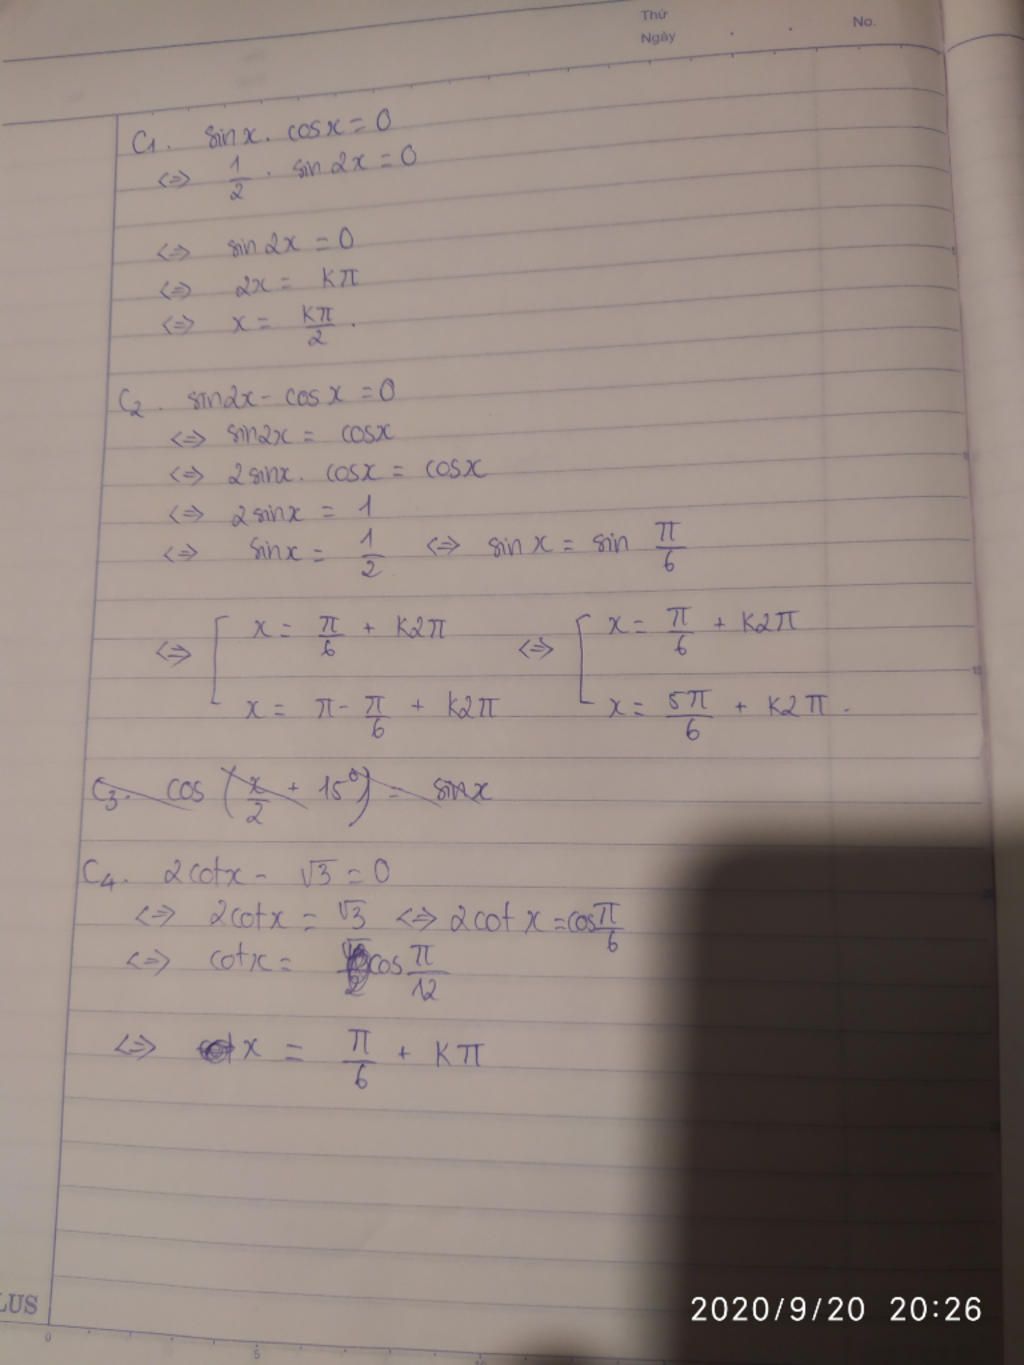 Thứ
No.
Ngày
C1. sinx. cosx = 0
<=> 1/2 . sin 2x = 0
<=> sin 2x = 0
<=> 2x = kπ
<=> x = kπ/2.
C2. sin2x - cosx = 0
<=> sin2x = cosx
<=> 2sinx. cosx = cosx
<=> 2sinx = 1
<=> sinx = 1/2 <=> sin x = sin π/6
<=> [ x = π/6 + k2π <=> [ x = π/6 + k2π
x = π - π/6 + k2π x = 5π/6 + k2π.
C3. cos (x/2 + 15°) = sinx
C4. 2cotx - √3 = 0
<=> 2cotx = √3 <=> 2cot x = cos π/6
<=> cotx = cos π/12
<=> x = π/6 + kπ
LUS
0
5
10
2020/9/20 20:26